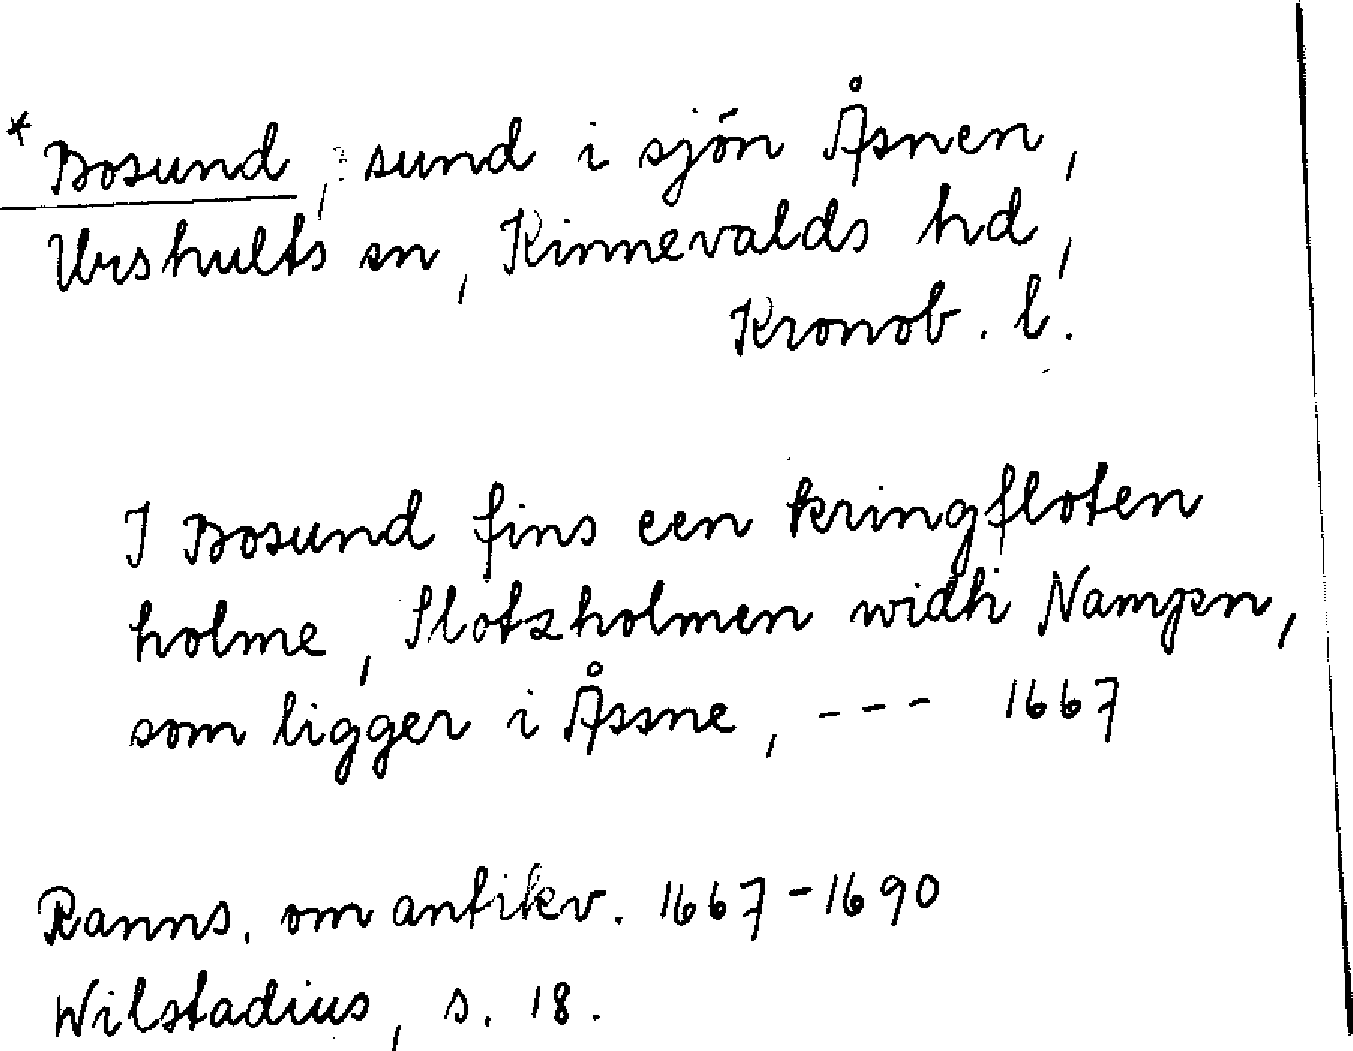 *Bosund, sund i sjön Åsnen,
Urshults sn, Kinnevalds hd,
Kronob. l.
I Bosund fins een kringfloten
holme, Slotzholmen widh Nampn,
som ligger i Åssne, --- 1667
Ranns. om antikv. 1667-1690
Wilstadius, s. 18.